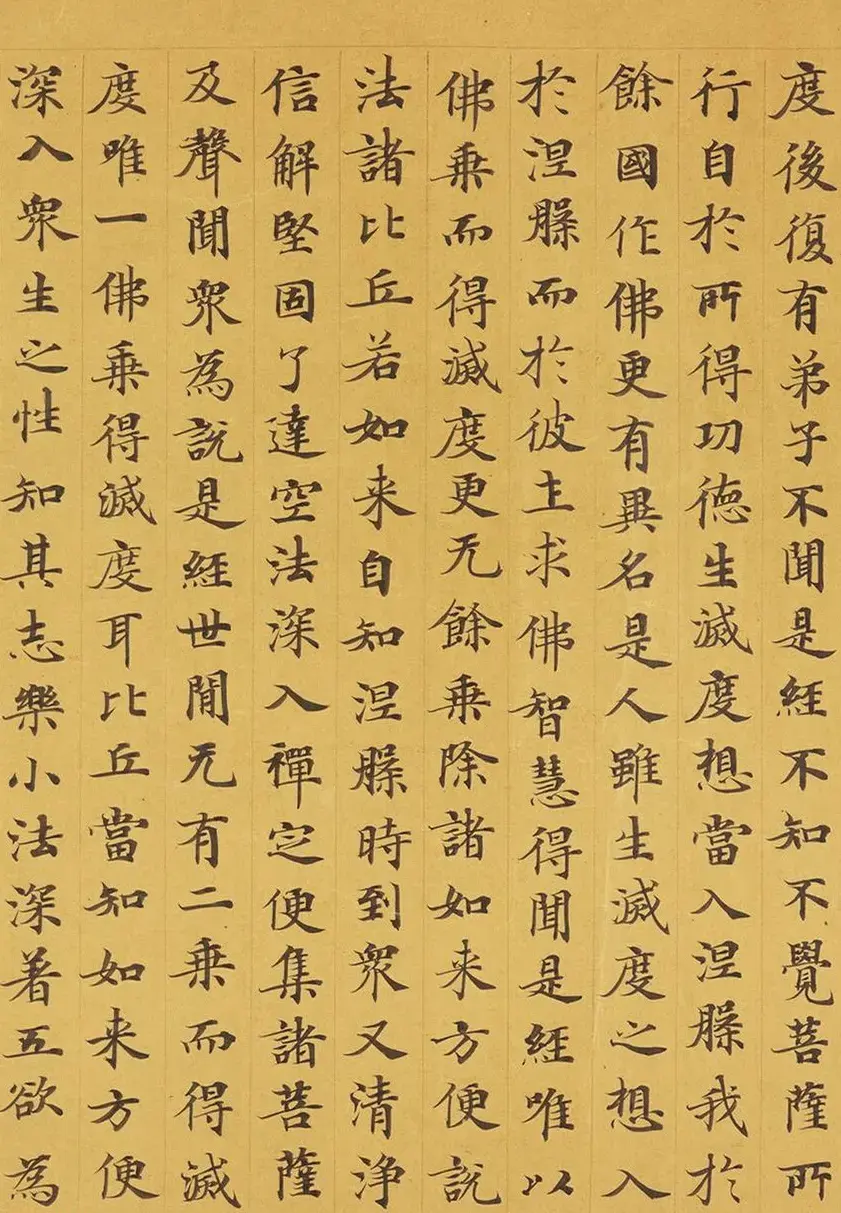 度後復有弟子不聞是經不知不覺菩薩所
行自於所得功德生滅度想當入涅槃我於
餘國作佛更有異名是人雖生滅度之想入
於涅槃而於彼土求佛智慧得聞是經唯以
佛乘而得滅度更无餘乘除諸如来方便說
法諸比丘若如来自知涅槃時到衆又清淨
信解堅固了達空法深入禪定便集諸菩薩
及聲聞衆為說是經世閒无有二乘而得滅
度唯一佛乘得滅度耳比丘當知如来方便
深入衆生之性知其志樂小法深著五欲為